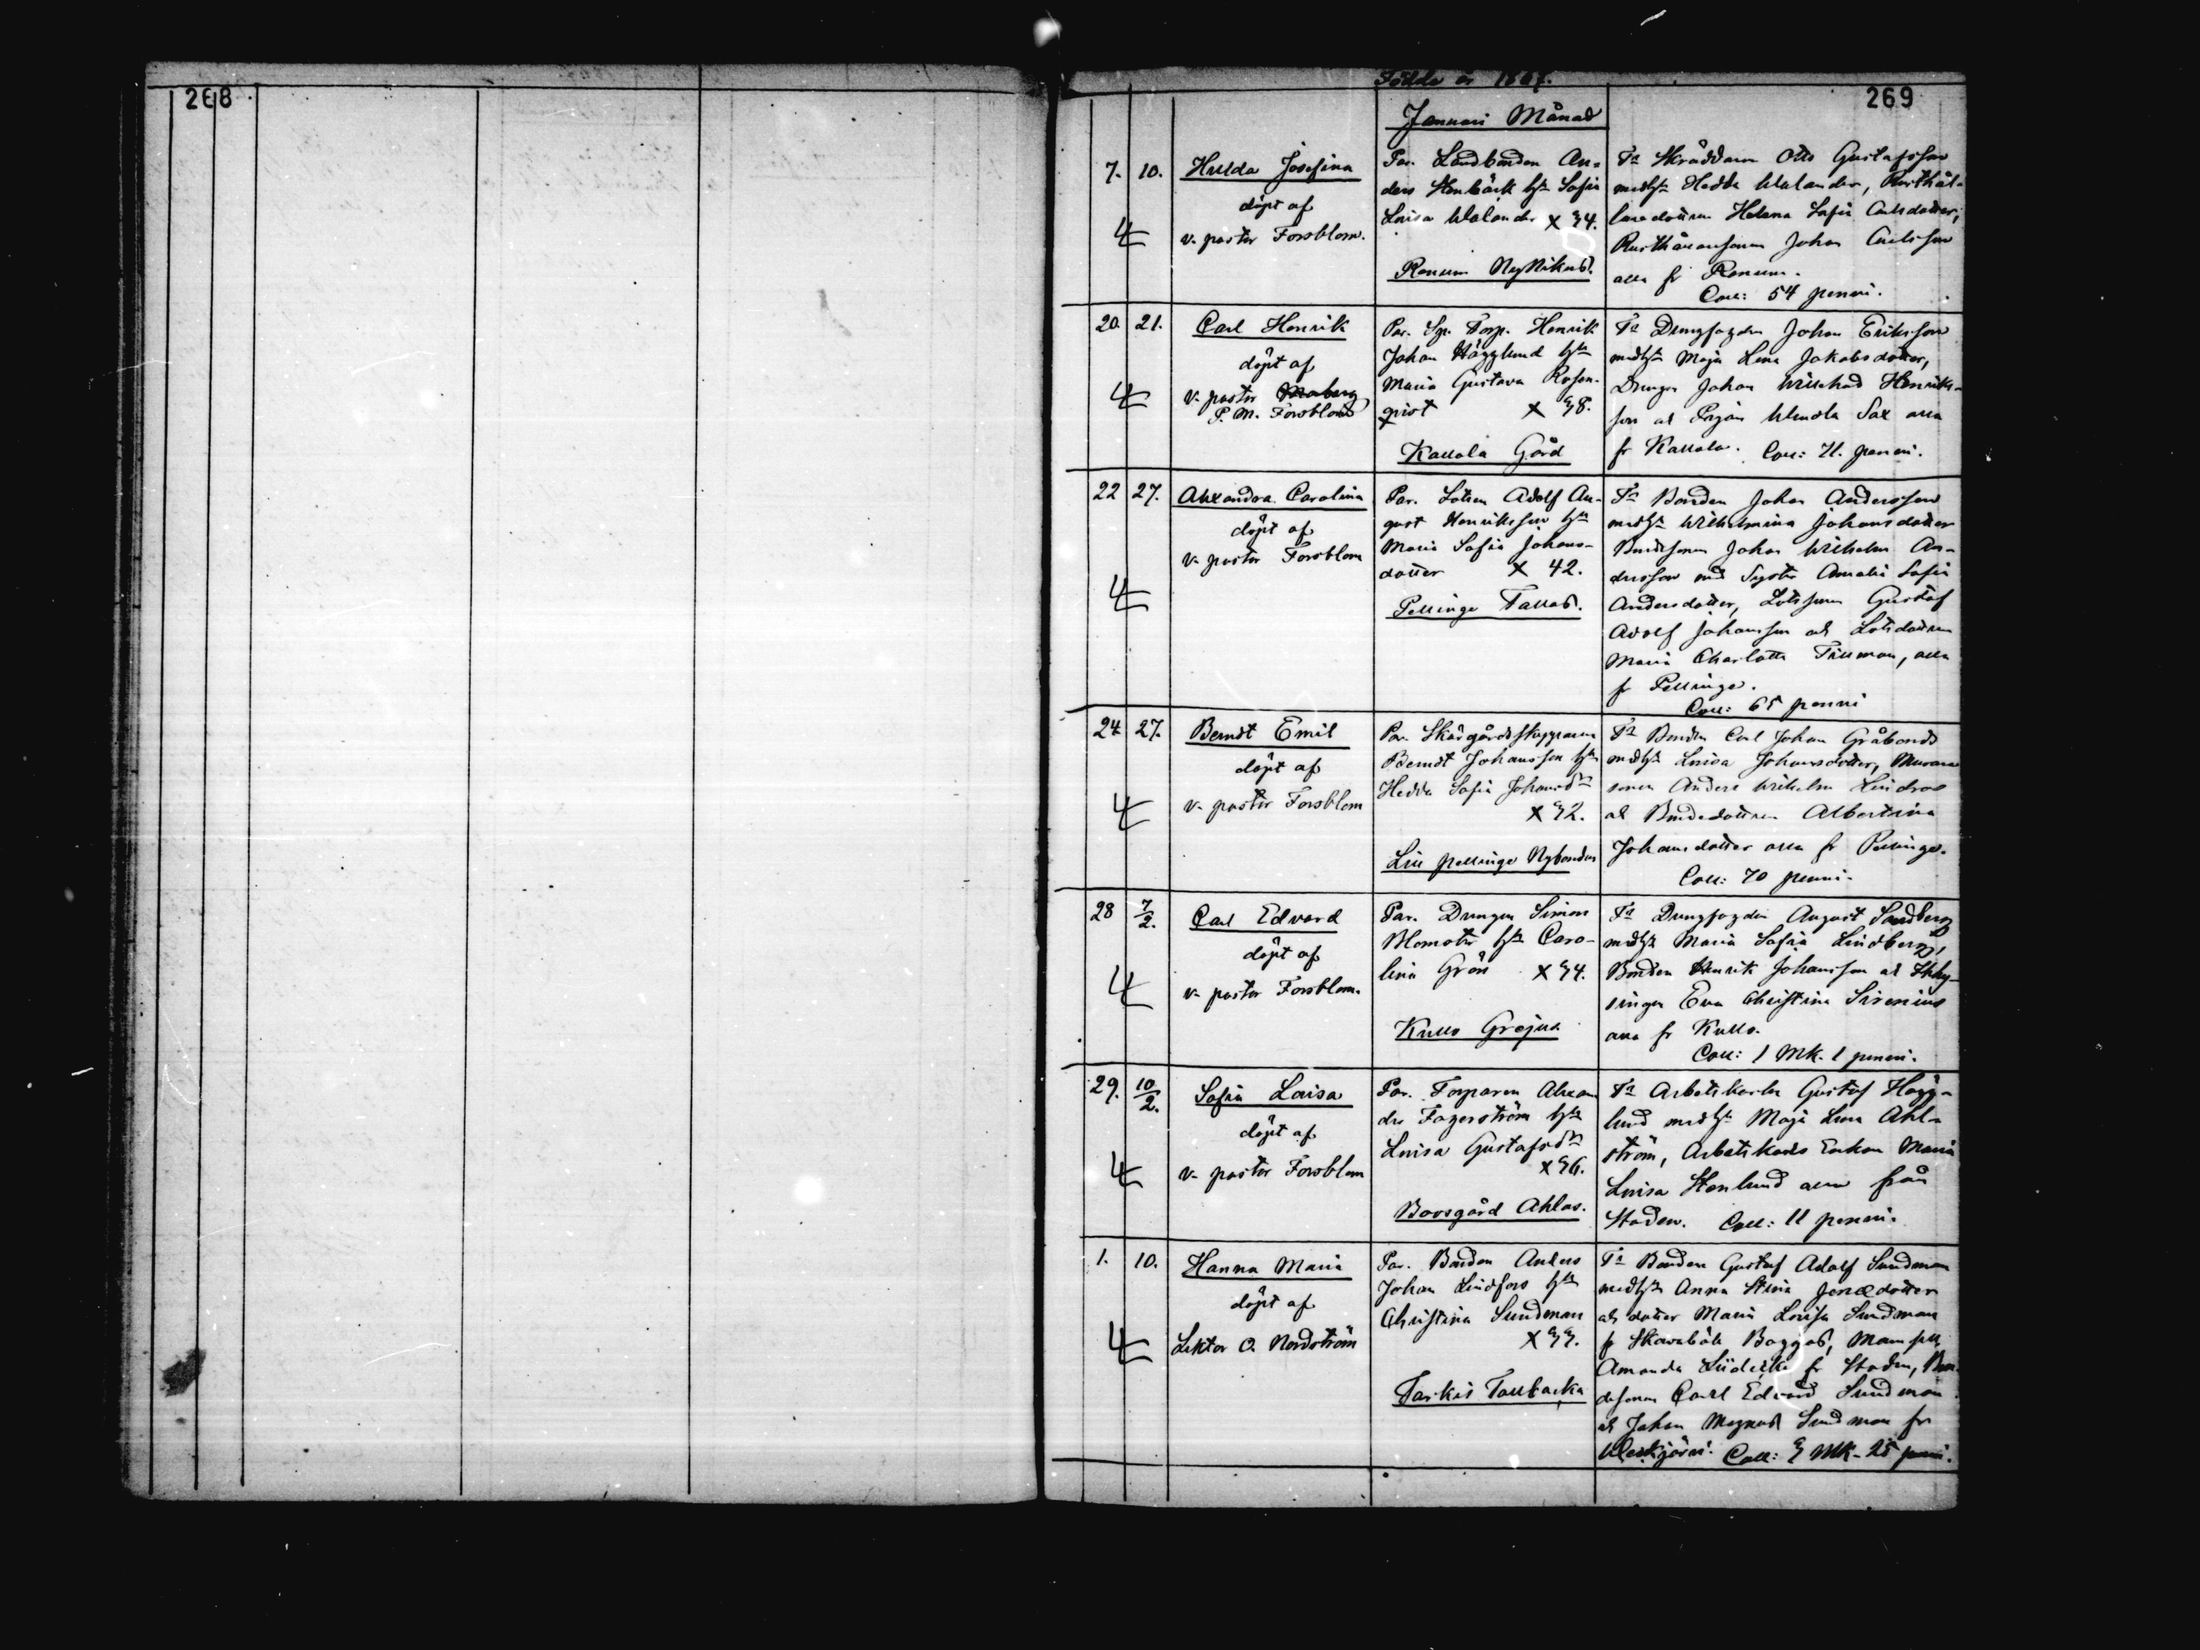 268
269
Födde år 1867.
Januari Månad
7. 10. Hulda Josefina
döpt af
v. pastor Forsblom.
Par. Landbonden An-
ders Stenbäck h. Sofia
Lovisa Walander X 34.
Renum NyNikus.
Skräddaren Otto Gustafsson
Hedda Walander, Rusthål-
laredottren Helena Sofia Carlsdotter,
Johan Carlsson
alla fr Renum.
Coll: 54 penni.
20. 21. Carl Henrik
döpt af
v. pastor
P. M. Forsblom
Par. Torp. Henrik
Johan Hägglund
Maria Gustava Rosen-
qvist X 38.
Kallola Gård
Drengfogden Johan Eriksson
Maja Lena Jakobsdotter,
Drengen Johan Willehad Henriks-
son Sax alla
fr Kallola. Coll: 71. penni.
22 27. Alexandra Carolina
döpt af
v. pastor Forsblom
Par. Lotsen Adolf Au-
gust Henriksson
Maria Sofia Johans-
dotter X 42.
Pellinge Tallas.
Bonden Johan Andersson
Wilhelmina Johansdotter
Bondesonen Johan Wilhelm An-
dersson med Syster Amalia Sofia
Andersdotter, Gustaf
Adolf Johansson Lotsdottren
Maria Charlotta Tillman, alla
fr Pellinge.
Coll: 65 penni
24 27. Berndt Emil
döpt af
v. pastor Forsblom
Par. Skärgårdsskepparen
Berndt Johansson
Hedda Sofia Johansdr
X 32.
Lill pellinge Nybondas
Bonden Carl Johan Gråbonds
Lovisa Johansdotter, Murare
sonen Anders Wilhelm Lindros
Bondedottren Albertina
Johansdotter alla fr Pellinge.
Coll: 70 penni.
28 7/2. Carl Edvard
döpt af
v. pastor Forsblom.
Par. Drengen Simon
Blomster Caro-
lina Grön X 34.
Kullo Grejus
Drengfogden August Sandberg
Maria Sofia Lindberg,
Bonden Henrik Johansson
Eva Christina Sirenius
alla fr Kullo.
Coll: 1 Mk. 1 penni.
29. 10/2. Sofia Lovisa
döpt af
v. pastor Forsblom
Par. Torparen Alexan
der Fagerström
Lovisa Gustafsdr
X 36.
Borsgård Ahlas.
Arbetskarlen Gustaf Hägg-
lund Maja Lena Ahl-
ström, Arbetskarls Enkan Maria
Lovisa Stenlund alla från
Staden. Coll: 11 penni.
1. 10. Hanna Maria
döpt af
Lektor O. Nordström
Par. Bonden Anders
Johan Lindfors
Christina Sundman
X 33.
Tarkis Tallbacka
Bonden Gustaf Adolf Sundman
Anna Stina
dotter Maria Lovisa Sundman
fr Skavaböle Baggas, Mamsell
Amanda fr Staden, Bon-
desonen Carl Edvard Sundman
Johan Magnus Sundman fr
Coll: 3 Mk. 25 penni.